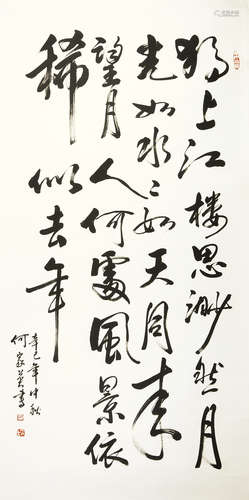 独上江楼思渺然月
光如水〻如天同来
望月人何處風景依
稀似去年
辛巳年仲秋
何家英書